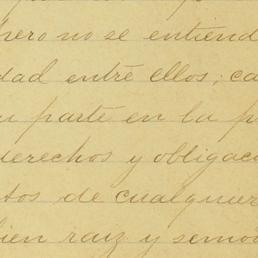 pero no se entiend
dad entre ellos; ca
u parte en la p
derechos y obligac
tos de cualquier
bien raiz y semo